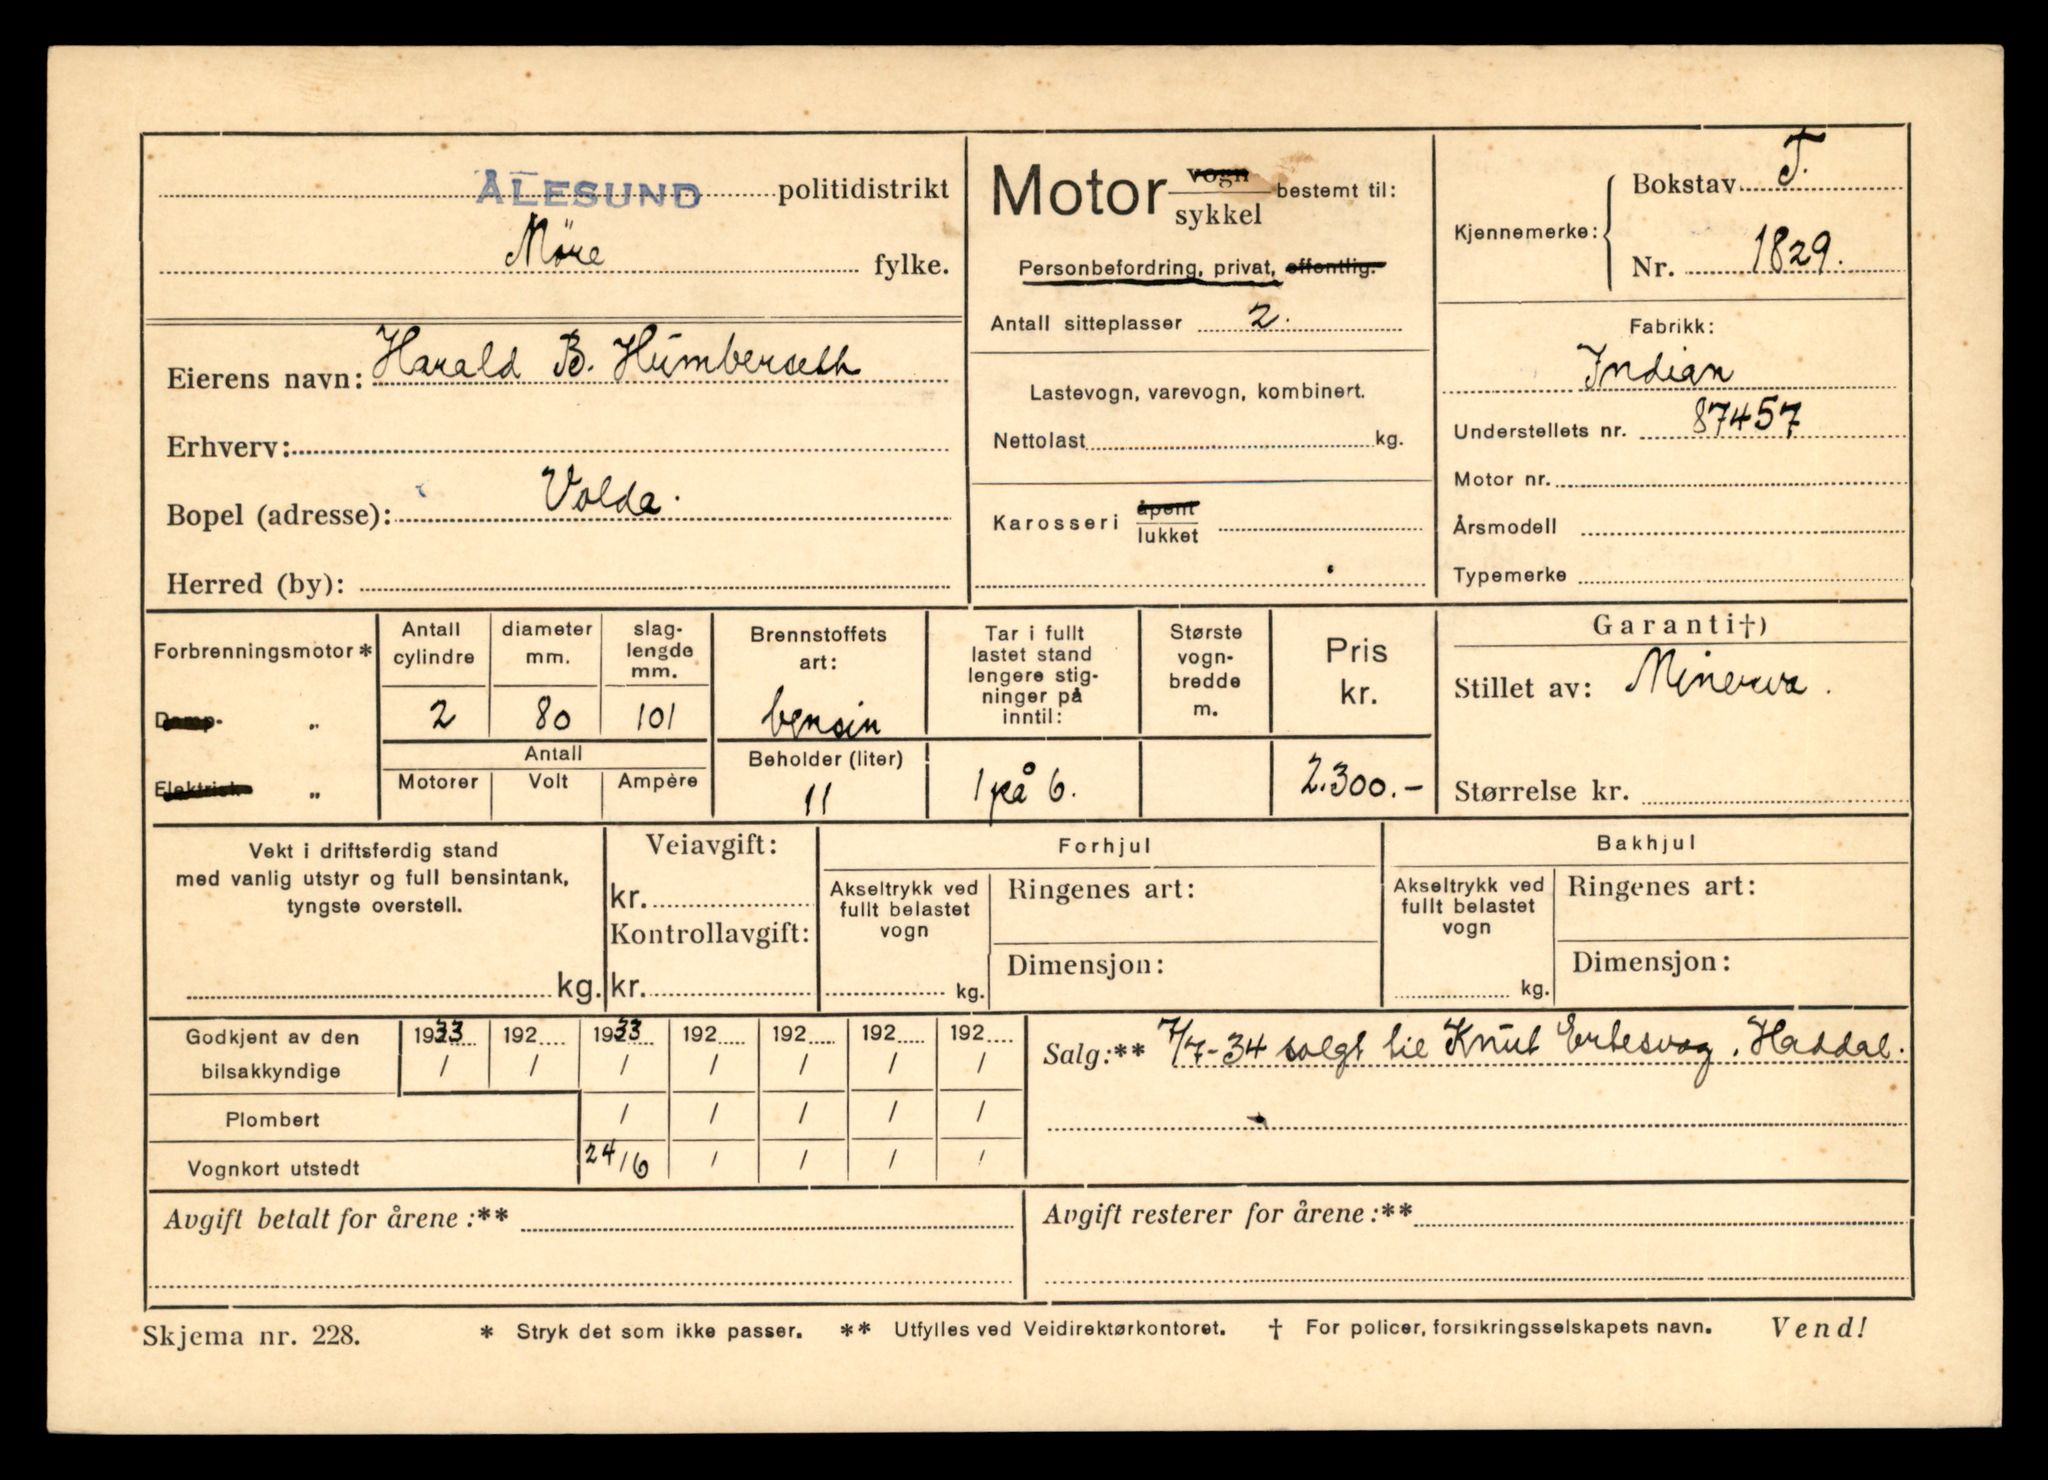 ÅLESUND politidistrikt
Möre fylke.
Eierens navn: Harald B. Humberseth
Erhverv:
Bopel (adresse): Volda.
Herred (by):
Motor vogn sykkel bestemt til:
Personbefordring, privat, offentlig.
Antall sitteplasser 2.
Lastevogn, varevogn, kombinert.
Nettolast kg.
Karosseri åpent lukket
Kjennemerke: Bokstav T.
Nr. 1829.
Fabrikk:
Indian
Understellets nr. 87457
Motor nr.
Årsmodell
Typemerke
Forbrenningsmotor *
Damp- „
Elektrisk „
Antall cylindre
2
diameter mm.
80
slag-
lengde
mm.
101
Antall
Motorer Volt Ampère
Brennstoffets
art:
bensin
Beholder (liter)
11
Tar i fullt
lastet stand
lengere stig-
ninger på
inntil:
1 på 6.
Største
vogn-
bredde
m.
Pris
kr.
2.300.-
Garanti†)
Stillet av: Minerva.
Størrelse kr.
Vekt i driftsferdig stand
med vanlig utstyr og full bensintank,
tyngste overstell.
kg.
Veiavgift:
kr.
Kontrollavgift:
kr.
Forhjul
Akseltrykk ved
fullt belastet
vogn
kg.
Ringenes art:
Dimensjon:
Bakhjul
Akseltrykk ved
fullt belastet
vogn
kg.
Ringenes art:
Dimensjon:
Godkjent av den 1933 192 1933 192 192 192 192
bilsakkyndige / / / / / / /
Plombert / / / / /
Vognkort utstedt 24/6 / / / /
Salg:** 7/7-34 solgt til Knut Ertesvog, Haddal.
Avgift betalt for årene :**
Avgift resterer for årene :**
Skjema nr. 228. * Stryk det som ikke passer. ** Utfylles ved Veidirektørkontoret. † For policer, forsikringsselskapets navn. Vend!